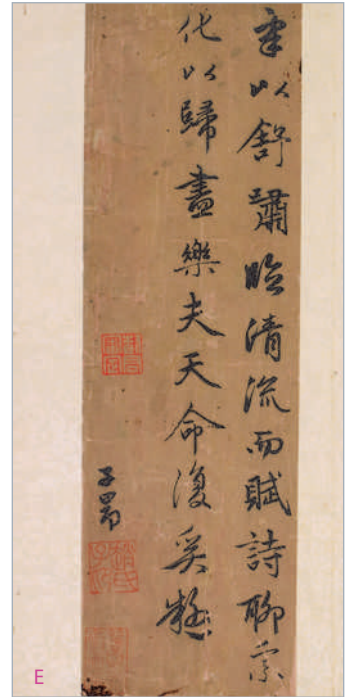 皋以舒嘯臨清流而賦詩聊乘
化以歸盡樂夫天命復奚疑
子昂
趙氏子昂
E